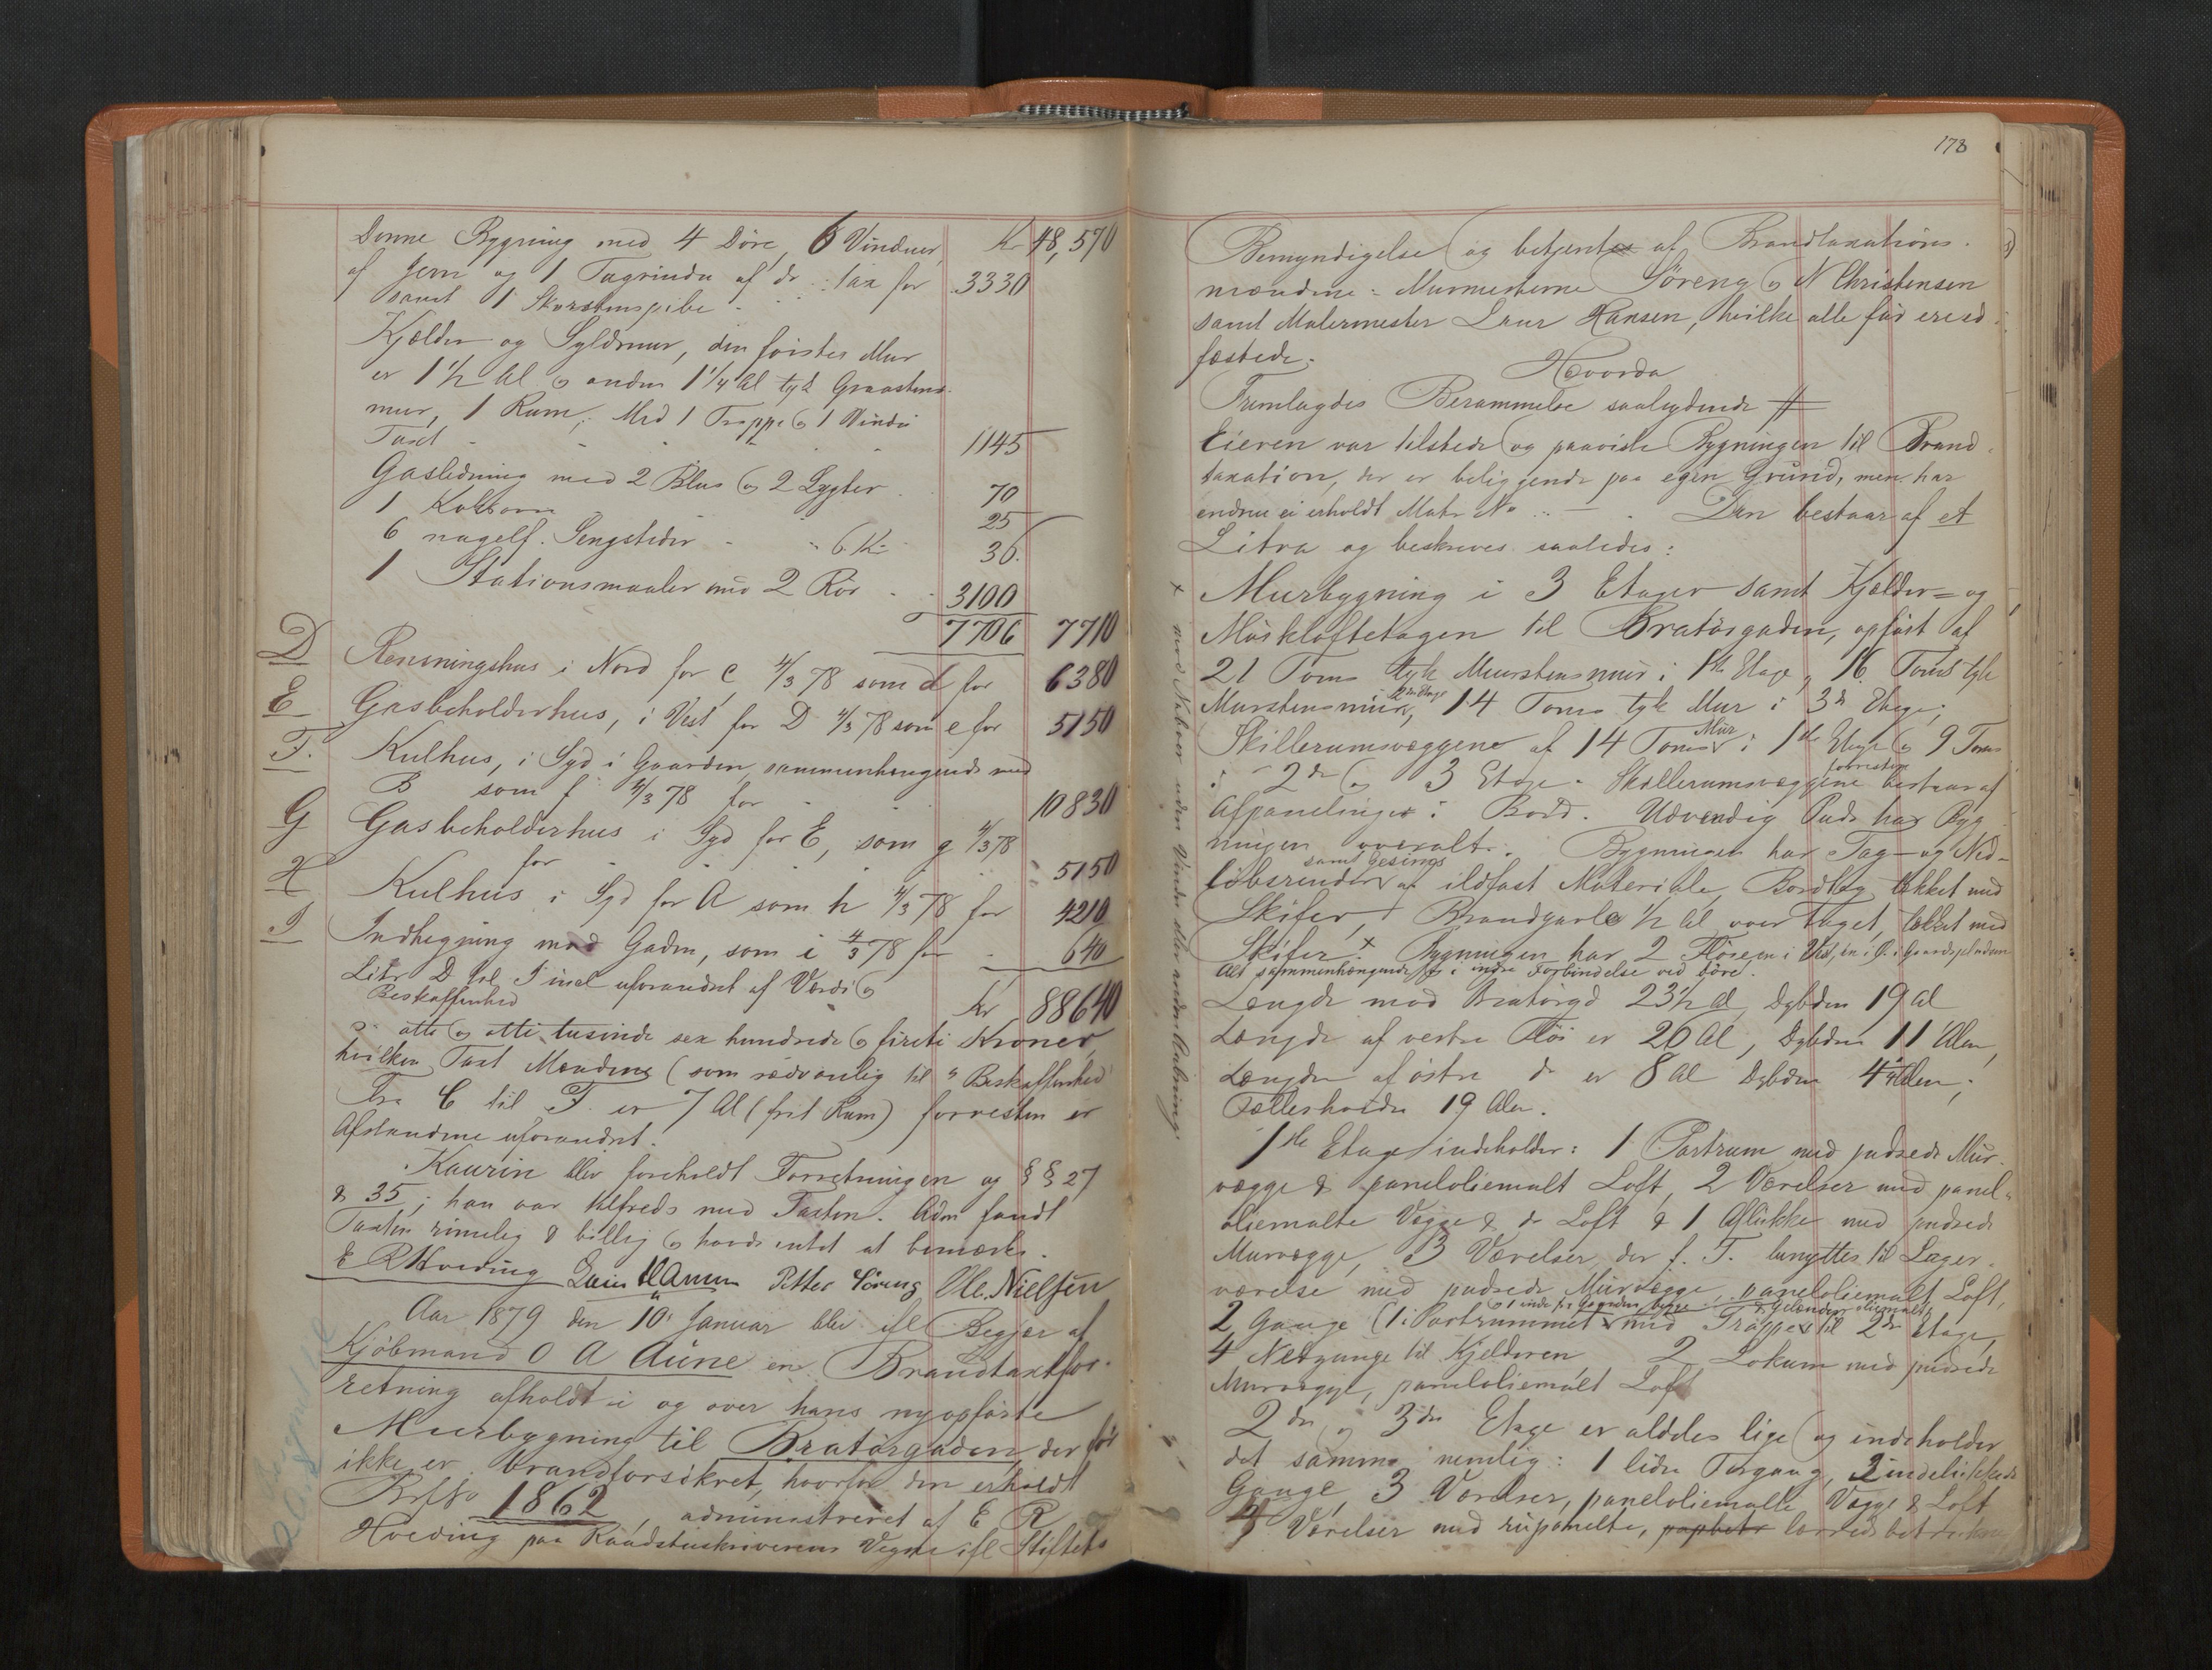 Denne Bygning med 4 Döre, 6 Vinduer, Kr 48,570
af Jern og 1 Tagrinde af do : tax for 3330
samt 1 Skorstenspibe
Kjælder og Syldmur, den förstes Mur
er 1 1/2 Al og anden 1 1/4 Al tyk Graastens-
mur, 1 Rum, Med 1 Trappe og 1 Vindu
Taxt 1145
Gasledning med 2 Blus og 2 Lygter 70
1 Kakkovn 25
6 nagelf. Sengsteder " 6 Kr 36.
1 Stationsmaaler med 2 Rör 3100
7706 7710
D Rensningshus i Nord for C 4/3 78 som d for 6380
E Gasbeholderhus, i Vest for D 4/3 78 som e for 5150
F. Kulhus, i Syd i Gaarden, sammenhengende med
B som f 4/3 78 for 10830
G Gasbeholderhus i Syd for E, som g 4/3 78
for 5150
H Kulhus i Syd for A som h 4/3 78 for 4210
I Indhegning mod Gaden, som i 4/3 78 for 640
Litr D til I incl uforandret af Værdi og
Beskaffenhed Kr 88640
otte og otti tusinde sex hundrede og firti Kroner,
hvilken Taxt Mændene (som sedvanlig til "Beskaffenhed"
Fra C til F. er 7 Al (frit Rum) forresten er
Afstandene uforandret.
Kaurin blev foreholdt Forretningen og §§ 27
& 35, han var tilfreds med Taxten. Adm fandt
Taxten rimelig & billig og havde intet at bemærke.
E R Hveding Laur Hansen Petter Söreng Ole Nielsen
Aar 1879 den 10. Januar blev ifl Begjær af
Kjöbmand O A Aune en Brandtaxtfor-
retning afholdt i og over hans nyopförte
Muurbygning til Bratörgaden, der för
ikke er brandforsikret, hvorfor den erholdt
1862, administreret af E R
Hveding paa Raadstueskriverens Vegne ifl Stiftets
178
Bemyndigelse og betjentes af Brandtaxations-
mændene: Murmesterne Söreng og N Christensen
samt Malermester Laur Hansen, hvilke alle før er ed-
fæstede.
Hvorda
Fremlagdes Berammelse saalydende #
Eieren var tilstede og paaviste Bygningen til Brand-
taxation, der er beliggende paa egen Grund, men har
endnu ei erholdt Matr No . Den bestaar af et
Litra og beskreves saaledes:
Murbygning i 3 Etager samt Kjælder- og
Mörkloftetagen til Bratörgaden, opfört af
21 Toms tyk Muurstensmur i 1ste Etage, 16 Toms tyk
Murstensmur i 2den Etage, 14 Toms tyk Mur i 3de Etage,
Skillerumsvæggene af 14 Toms Mur i 1ste Etage og 9 Toms
i 2de og 3 Etage. Skillerumsvæggene forresten bestaar af
Afpanelinger i Bord. Udvendig Puds har Byg-
ningen overalt. Bygningen har Tag- og Ned-
löbsrender samt Gesims af ildfast Materiale, Bordtag tækket med
Skifer, Brandgavle 1/2 Al over Taget, tækket med
Skifer. x Bygningen har 2 Flöie en i Vest, en i Ö. i Gaardspladsen
Alt sammenhængende og i indre Forbindelse ved Döre.
Længde mod Bratörgd 23 1/2 Al, Dybden 19 Al
Længde af vestre Flöi er 20 Al, Dybden 11 Alen,
Længden af östre do er 8 Al Dybden 4 Alen,
Fælleshöide 19 Alen.
x mod Naboer uden Vinduer eller anden Aabning.
1ste Etage indeholder: 1 Portrum med pudsede Mur-
vægge & paneloliemalt Loft, 2 Værelser med panel-
oliemalte Vægge & do Loft & 1 Aflukke med pudsede
Murvægge, 3 Værelser, der f. T. benyttes til Lager-
værelse med pudsede Murvægge, paneloliemalt Loft,
2 Gange (1 i Portrummet og 1 inde fra Gaarden, begge med Trapper & Gelænder oliemalt til 2den Etage,
4 Nedgange til Kjelderen 2 Lokum med pudsede
Murvægge, paneloliemalt Loft
2den og 3die Etage er aldeles lige og indeholder
det samme nemlig: 1 liden Forgang, 2 indelukkede
Gange, 3 Værelser, paneloliemalte Vægge & Loft
4 Værelser med rupanelte, papbetr lærredsbetrukne